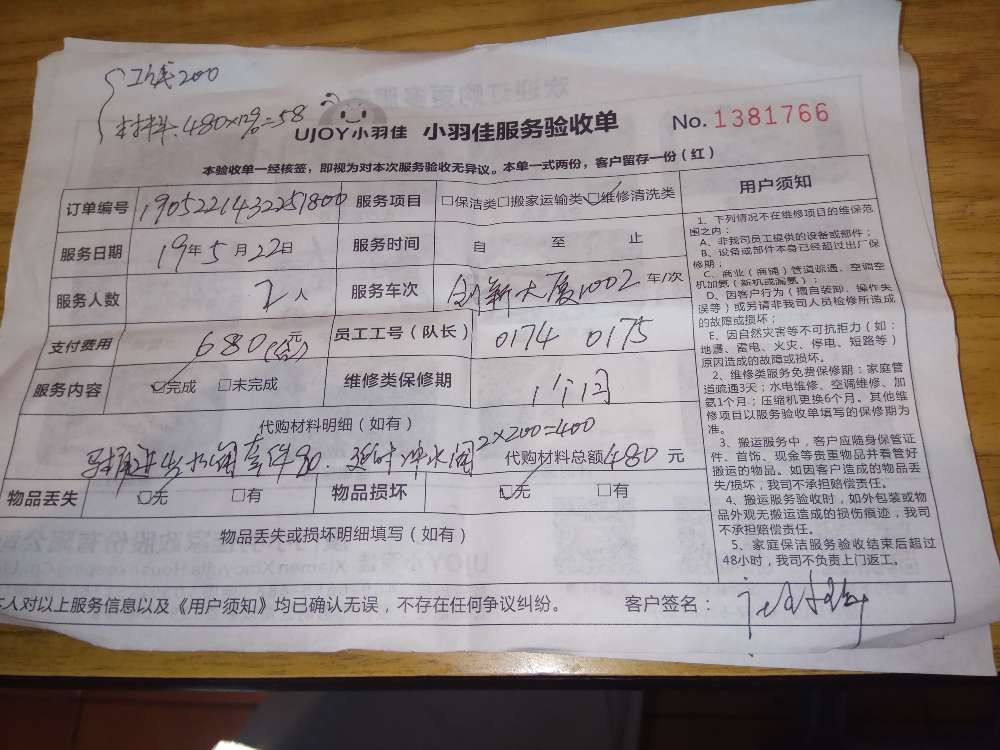 工钱200
材料:480×12%=58
UJOY小羽佳 小羽佳服务验收单 No.1381766
本验收单一经核签,即视为对本次服务验收无异议。本单一式两份,客户留存一份(红)
订单编号 1905221432251800 服务项目 □保洁类□搬家运输类☑维修清洗类
服务日期 19年5月22日 服务时间 自 至 止
服务人数 2人 服务车次 创新大厦1002 车/次
支付费用 680 元 员工工号(队长) 0174 0175
服务内容 ☑完成 □未完成 维修类保修期 1个月
代购材料明细(如有)
进水阀套件80. 延时冲水阀2×200=400 代购材料总额480元
物品丢失 ☑无 □有 物品损坏 ☑无 □有
物品丢失或损坏明细填写(如有)
用户须知
1、下列情况不在维修项目的维保范
围之内:
A、非我司员工提供的设备或部件;
B、设备或部件本身已经超过出厂保
修期;
C、商业(商铺)管道疏通、空调空
机加氨(新机或漏氨);
D、因客户行为(擅自装卸、操作失
误等)或另请非我司人员检修所造成
的故障或损坏;
E、因自然灾害等不可抗拒力(如:
地震、雷电、火灾、停电、短路等)
原因造成的故障或损坏。
2、维修类服务免费保修期:家庭管
道疏通3天;水电维修、空调维修、加
氨1个月;压缩机更换6个月。其他维
修项目以服务验收单填写的保修期为
准。
3、搬运服务中,客户应随身保管证
件、首饰、现金等贵重物品并看管好
搬运的物品。如因客户造成的物品丢
失/损坏,我司不承担赔偿责任。
4、搬运服务验收时,如外包装或物
品外观无搬运造成的损伤痕迹,我司
不承担赔偿责任。
5、家庭保洁服务验收结束后超过
48小时,我司不负责上门返工。
本人对以上服务信息以及《用户须知》均已确认无误,不存在任何争议纠纷。 客户签名: